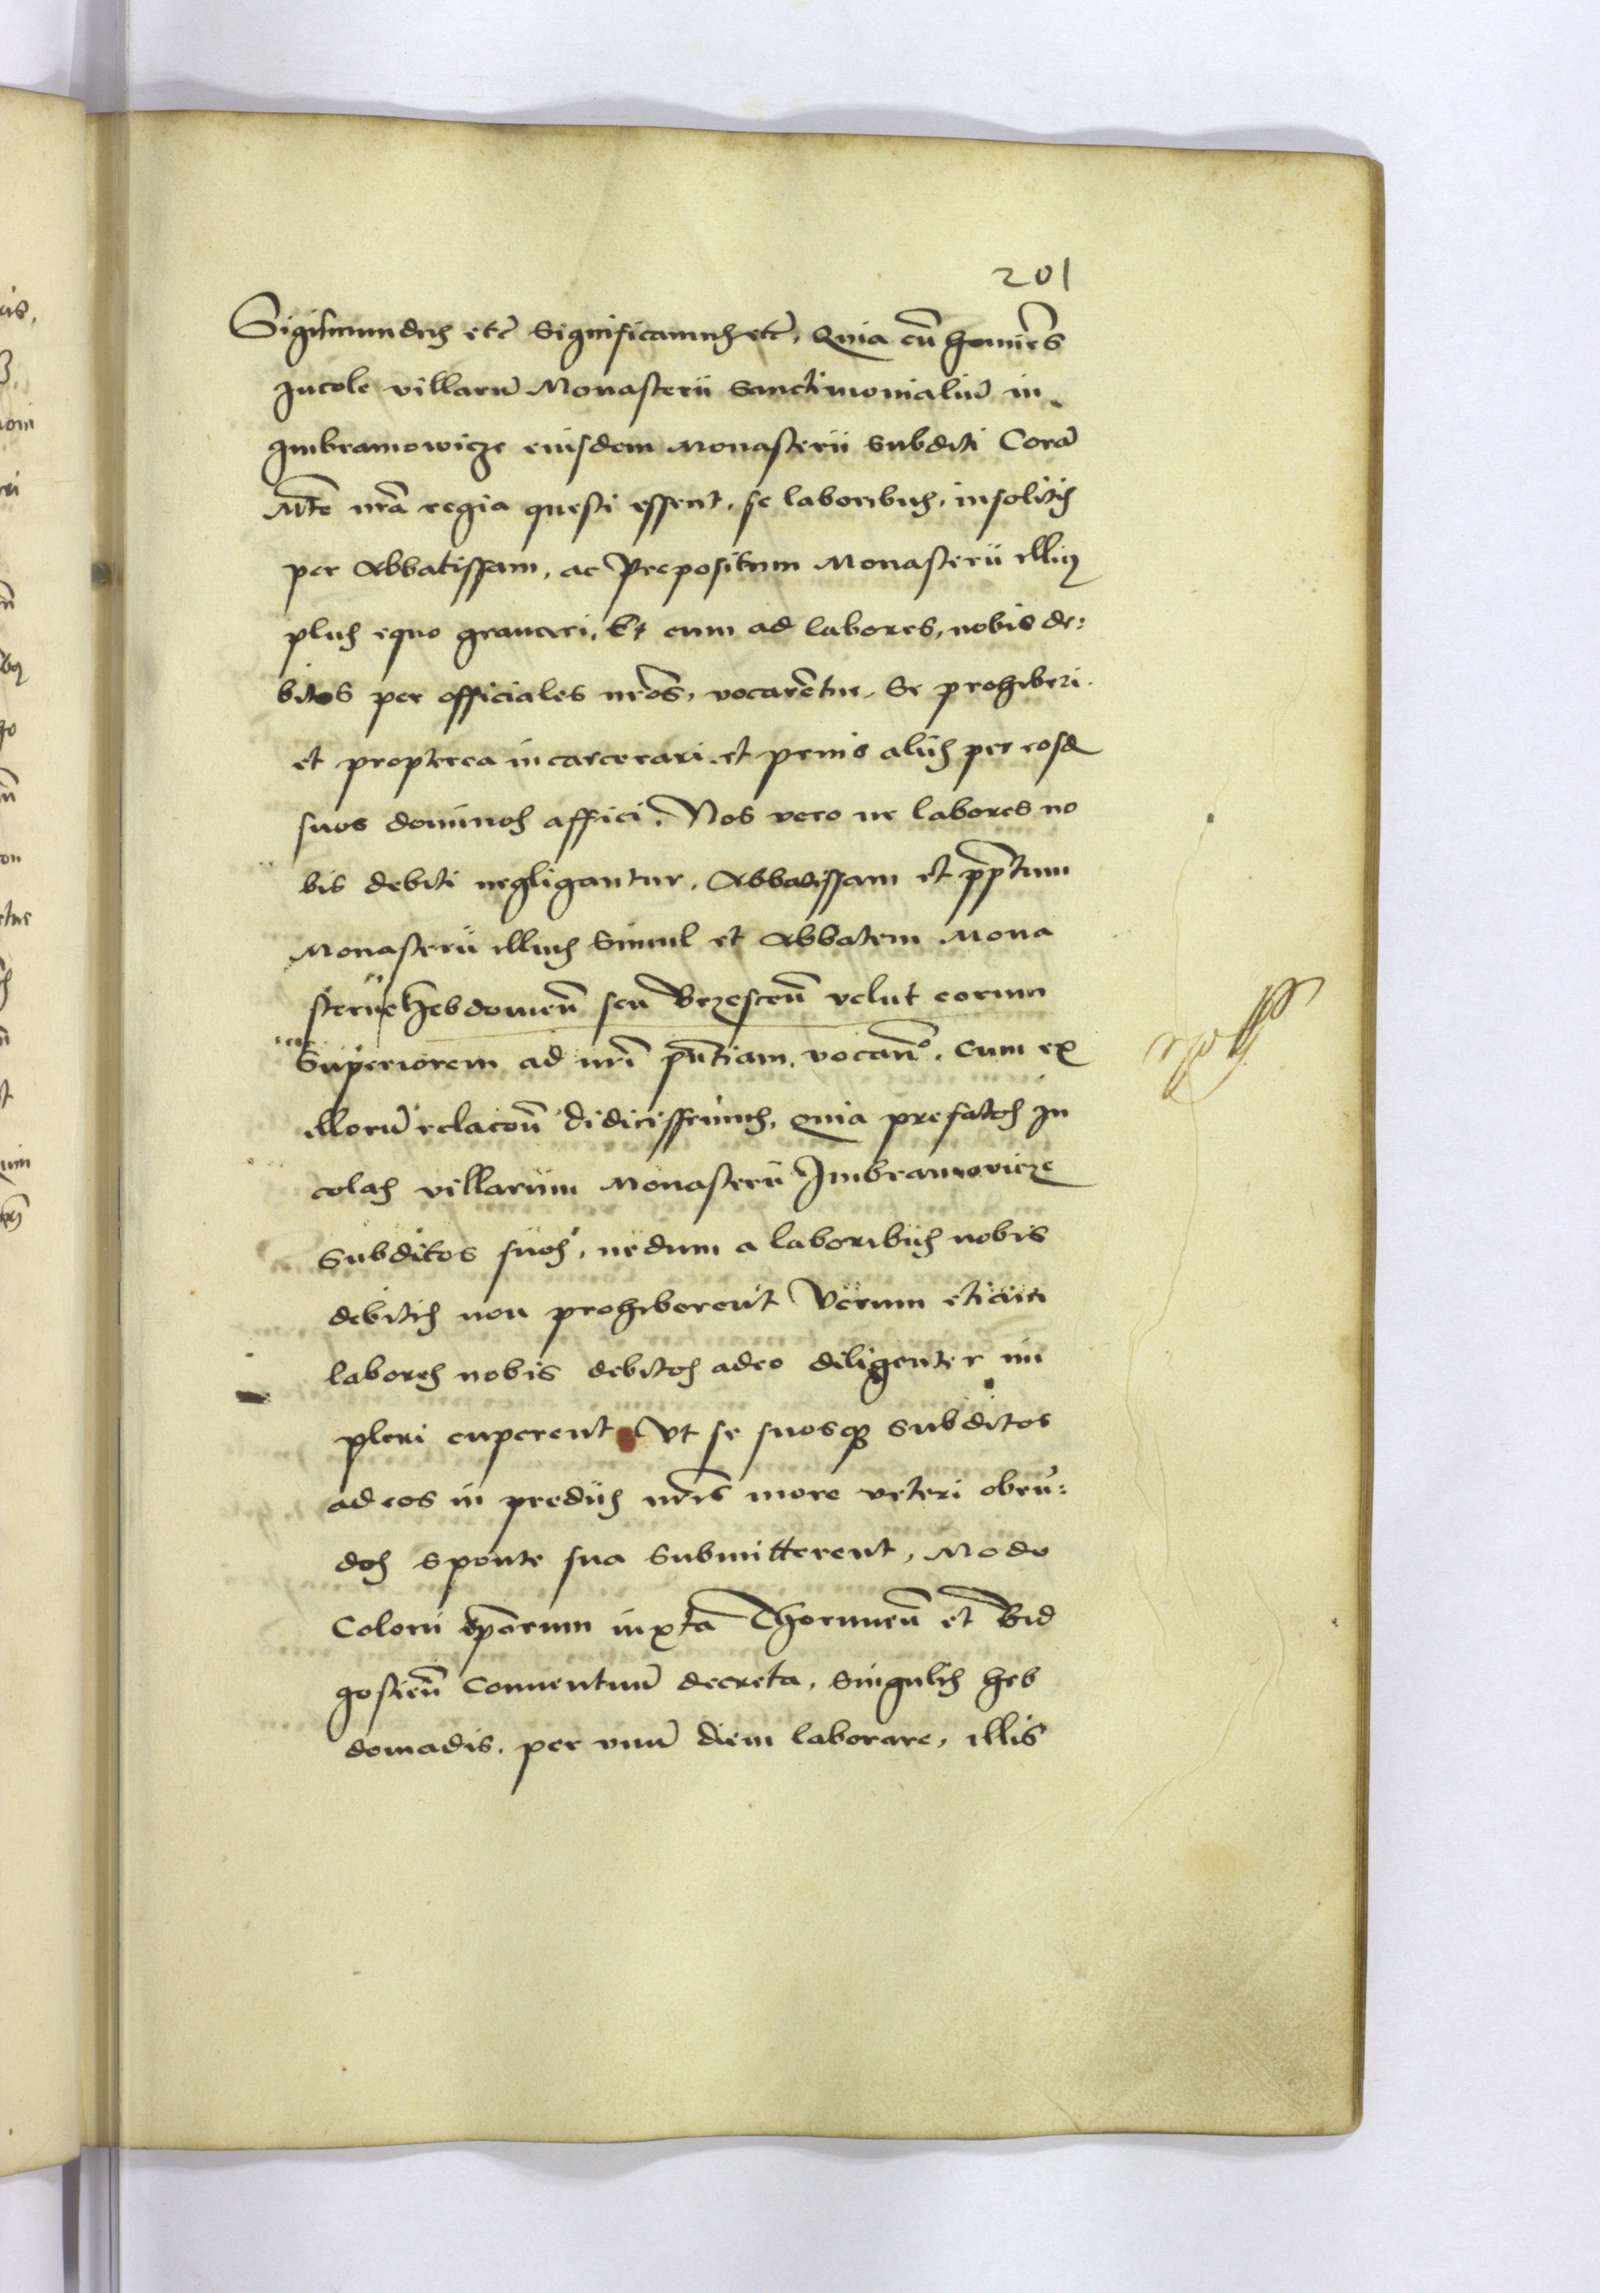 201
Sigismundus etc̄ Significamus etc̄, Quia cū homīes
Incole villarū Monasterii Sanctimonialiū in
Imbramowicze eiusdem Monasterii subditi Corā
Mte nrā regia questi essent, se laboribus, insolitis
per Abbatissam, ac Prepositum Monasterii illiꝰ
plus equo grauari, Et cum ad labores, nobis de:
bitos per officiales nrōs, vocarētur, Se prohiberi
et propterea incarcerari, et penis aliis per eosd
suos dominos affici. Nos vero ne labores no
bis debiti negligantur, Abbatissam et pp̄tum
Monasterii illius Simul et Abbatem Mona
sterii Hebdoweñ seu Brzesceñ velut eorum
Superiorem ad nrī pn̄tiam, vocauiͦ. Cum ex
illorū relacoñ didicissemus, quia prefatos In
colas villarum Monasterii Imbramovicze
Subditos suos, nedum a laboribus nobis
debitis non prohiberent Verum etiam
labores nobis debitos adeo diligenter im
pleri cuperent Vt se suosqꝫ subditos
ad eos in prediis nrīs more veteri obeū:
dos sponte sua submitterent, Modo
Coloni ip̄orum iuxta Thoruneñ et Bid
gostieñ Conuentuū decreta, Singulis heb
domadis, per vnū diem laborare, illis